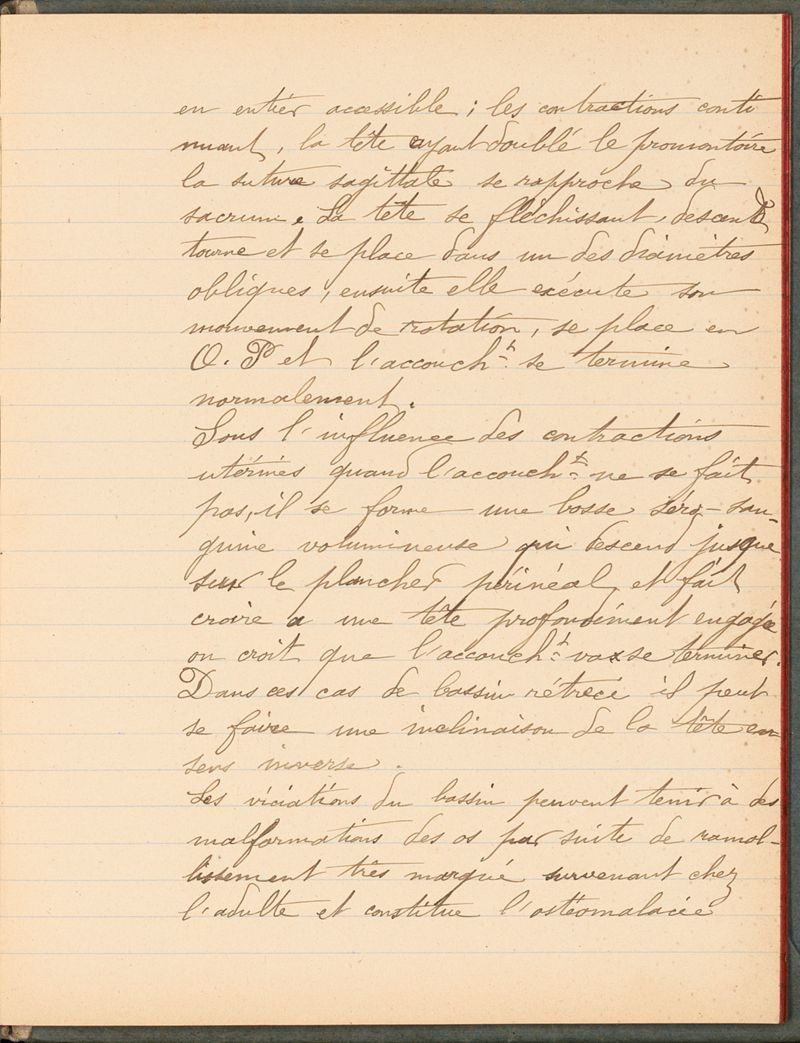 en entier accessible ; les contractions conti
nuant, la tête ayant doublé le promontoire
la suture sagittale se rapproche du
sacrum. La tête se fléchissant, descend
tourne et se place dans un des diamètres
obliques, ensuite elle exécute son
mouvement de rotation, se place en
O. P et l'accouch.t se termine
normalement.
Sous l'influence des contractions
utérines quand l'accouch.t ne se fait
pas, il se forme une bosse séro-san-
guine volumineuse qui descend jusque
sur le plancher périnéal et fait
croire a une tête profondément engagée
on croit que l'accouch.t va se terminer.
Dans ces cas de bassin rétréci il peut
se faire une inclinaison de la tête en
sens inverse.
Les viciations du bassin peuvent tenir à des
malformations des os par suite de ramol-
lissement très marqué survenant chez
l'adulte et constitue l'ostéomalacie